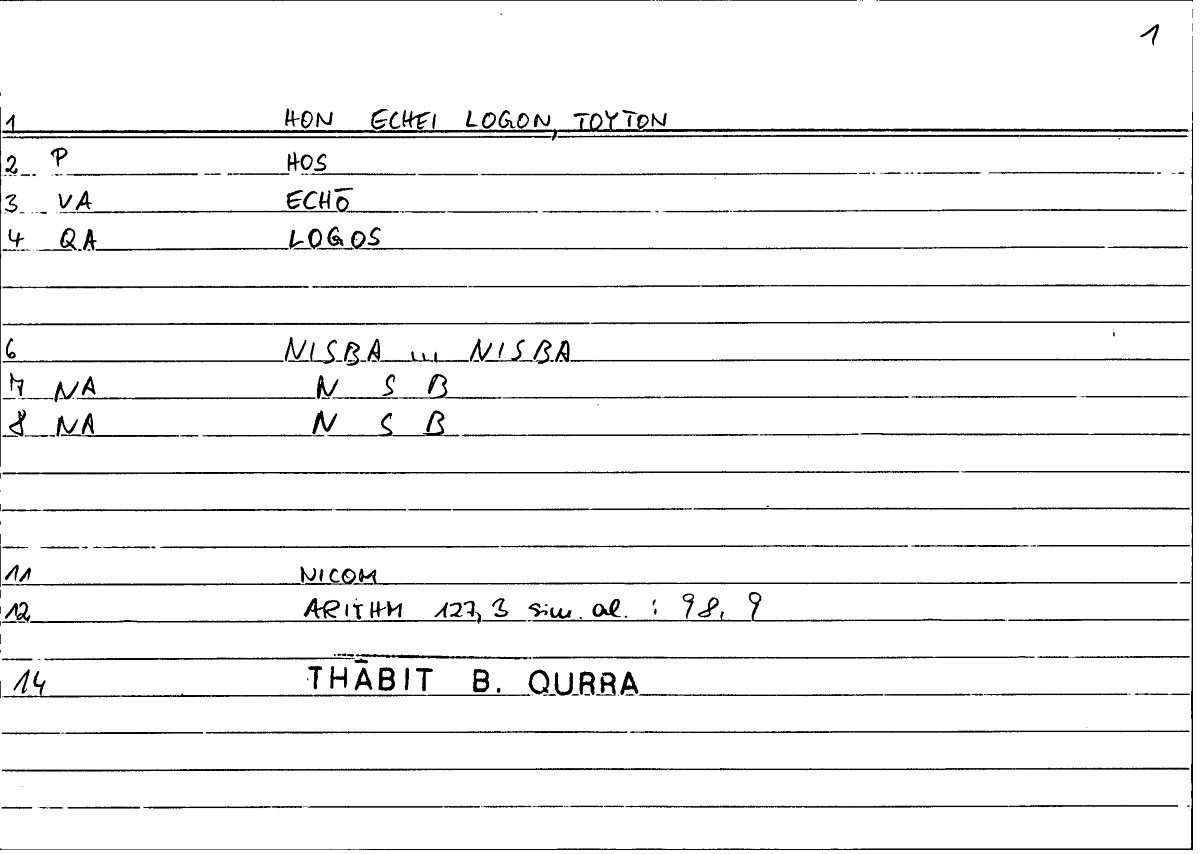 1
1 HON ECHEI LOGON, TOYTON
2 P HOS
3 VA ECHŌ
4 QA LOGOS
6 NISBA ... NISBA
7 NA N S B
8 NA N S B
11 NICOM
12 ARITHM 127, 3 sim. al. : 98, 9
14 THĀBIT B. QURRA